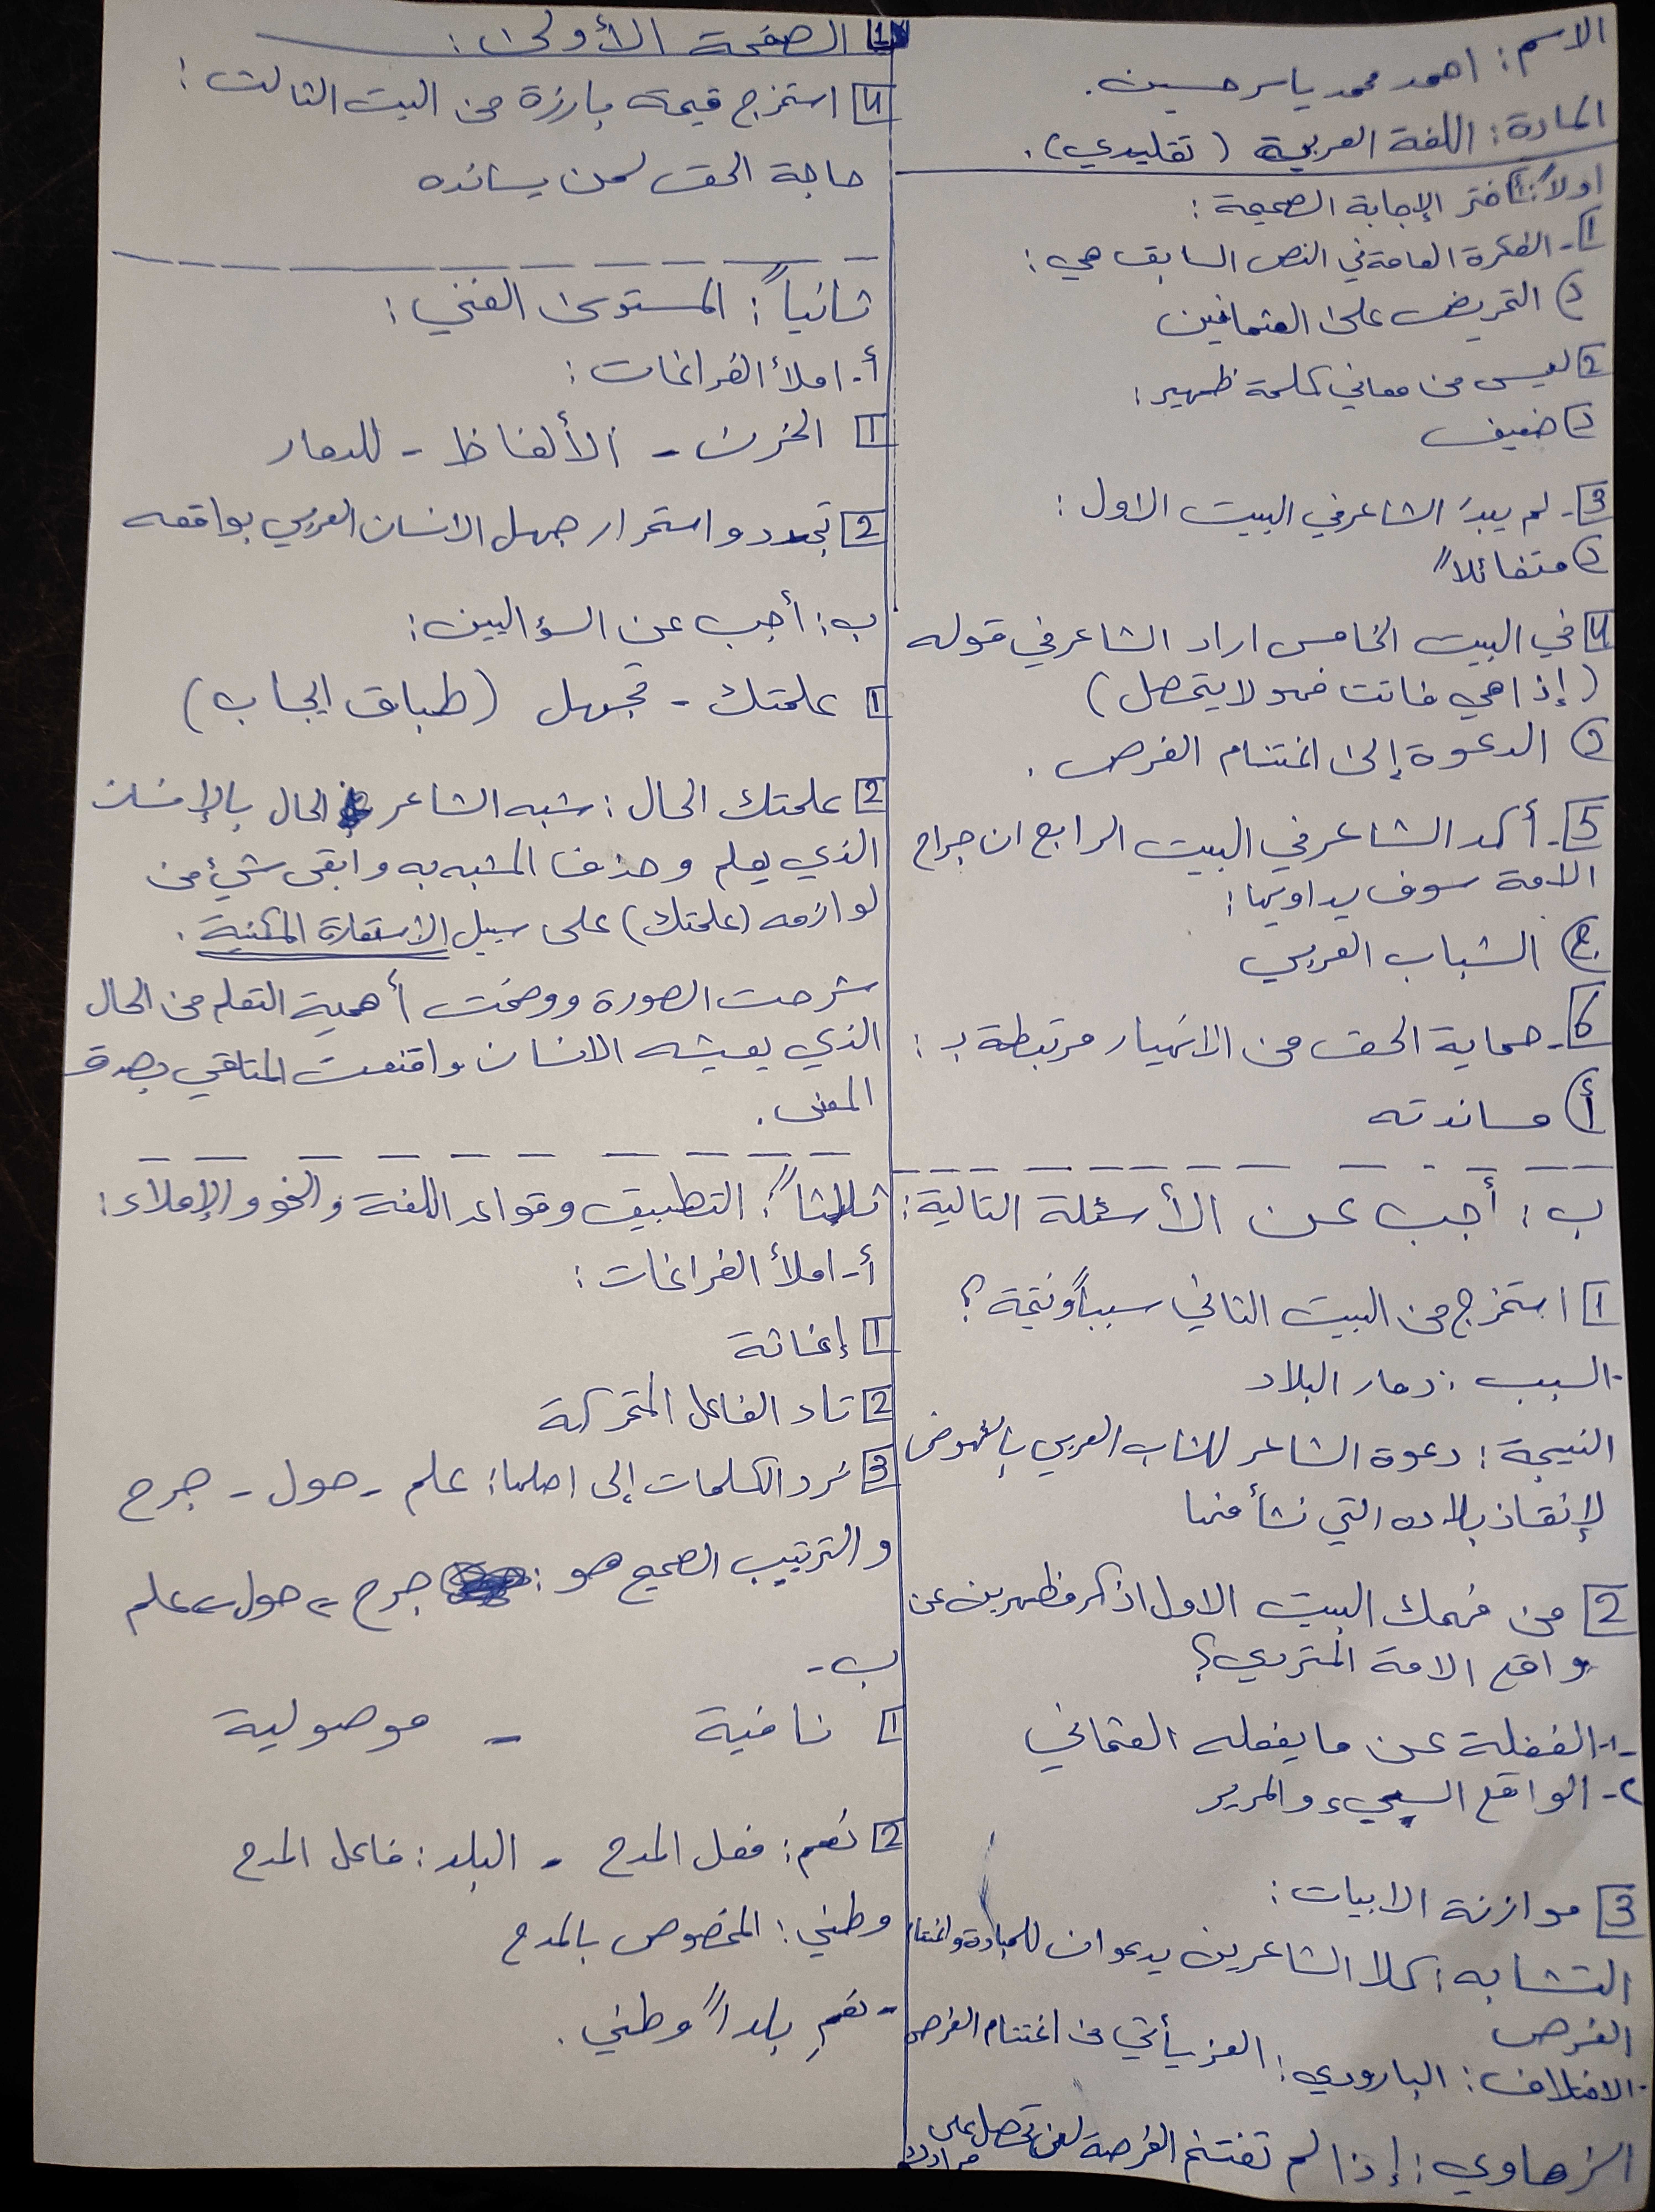 الاسم: احمد محمد ياسر حسين.
المادة: اللغة العربية (تقليدي).
اولاً: أ اختر الإجابة الصحيحة:
1- الفكرة العامة في النص السابق هي:
د) التحريض على العثمانيين
2 ليس من معاني كلمة ظهير:
د) ضعيف
3- لم يبدُ الشاعر في البيت الاول:
د) متفائلاً
4 في البيت الخامس اراد الشاعر في قوله
(إذا هي فاتت فهو لا يتحصل)
د) الدعوة إلى اغتنام الفرص.
5- أكد الشاعر في البيت الرابع ان جراح
الامة سوف يداويها:
ج) الشباب العربي
6- حماية الحق من الانهيار مرتبطة بـ:
أ) مساندته
ب: أجب عن الأسئلة التالية:
1 استخرج من البيت الثاني سبباً ونتيجة؟
- السبب: دمار البلاد
النتيجة: دعوة الشاعر للشاب العربي بالنهوض
لإنقاذ بلاده التي نشأ فيها
2 من فهمك البيت الاول اذكر مظهرين عن
واقع الامة المتردي؟
1- الغفلة عن ما يفعله العثماني
2- الواقع السيء والمرير
3 موازنة الابيات:
التشابه: كلا الشاعرين يدعوان للمبادرة واغتنام
الفرص
- الاختلاف: البارودي: العز يأتي من اغتنام الفرص
الزهاوي: إذا لم تغتنم الفرصة لن تحصل على
مرادك
1 الصفحة الأولى:
4 استخرج قيمة بارزة من البيت الثالث:
حاجة الحق لمن يسانده
ثانياً: المستوى الفني:
أ- املأ الفراغات:
1 الحزن - الألفاظ - للدمار
2 تجدد واستمرار جهل الانسان العربي بواقعه
ب: أجب عن السؤاليين:
1 علمتك - تجهل (طباق ايجاب)
2 علمتك الحال: شبه الشاعر الحال بالإنسان
الذي يعلم وحذف المشبه به وابقى شيئ من
لوازمه (علمتك) على سبيل الاستعارة المكنية.
شرحت الصورة ووضحت أهمية التعلم من الحال
الذي يعيشه الانسان واقنعت المتلقي بصدق
المعنى.
ثالثاً: التطبيق وقواعد اللغة والنحو والإملاء:
أ- املأ الفراغات:
1 إغاثة
2 تاء الفاعل المتحركة
3 نرد الكلمات إلى اصلها: علم - حول - جرح
والترتيب الصحيح هو: جرح ← حول ← علم
ب-
1 نافية - موصولية
2 نعم: فعل المدح - البلد: فاعل المدح
وطني: المخصوص بالمدح
- نعمِ بلداً وطني.